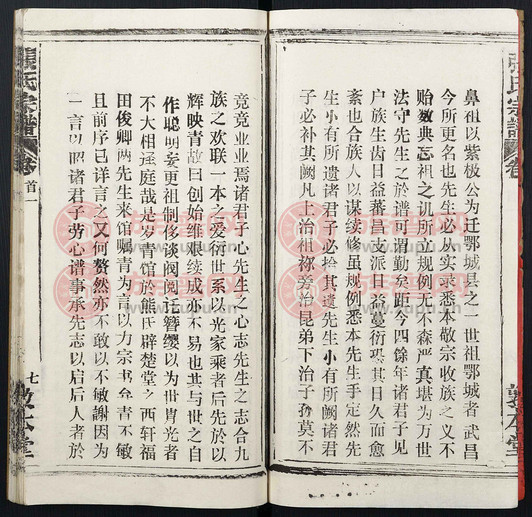 張氏宗譜 卷
鼻祖以紫极公为迁鄂城县之一世祖鄂城者武昌
今所更名也先生必从实录悉本敬宗收族之义不
贻数典忘祖之讥所立规例无不森严真堪为万世
法守先生之於谱可谓勤矣距今四余年诸君子见
户族生齿日益蕃昌分派日益蔓衍恐其日久而愈
紊也合族人以谋续修虽规例悉本先生手定然先
生小有所遗诸君子必拾其遗先生小有所阙诸君
子必补其阙凡上治祖祢旁治昆弟下治子孙莫不
敦本堂
張氏宗譜 卷首一
兢兢业业焉诸君子心先生之心志先生之志合九
族之欢联一本之爱衍世系以光家乘者后先於以
辉映青故曰创始维艰续成亦不易也其与世之自
作聪明妄更祖制侈谈阀阅迁簪缨以为世胄光者
不大相迳庭哉是岁青馆於熊氏辟楚堂之西轩福
田俊卿两先生来馆嘱青为言以力宗书弁青不敏
且前序已详言之又何赘然亦不敢以不敏谢因为
一言以昭诸君子劳心谱事承先志以启后人者於
七 敦本堂